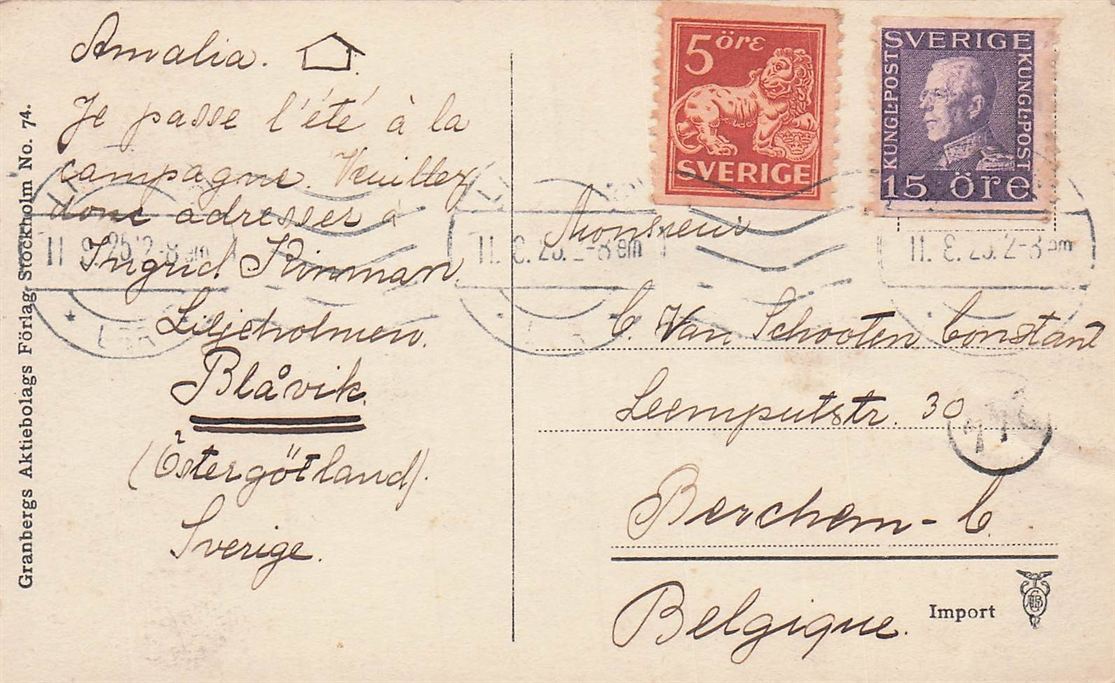 Amalia.
Je passe l'été à la
campagne Veuillez
donc adresser à
Ingrid Kinman
Liljeholmen.
Blåvik.
(Östergötland).
Sverige.
Granbergs Aktiebolags Förlag Stockholm No. 74.
5 öre
SVERIGE
SVERIGE
KUNGL.POST
KUNGL.POST
15 öre
Monsieur
C. Van Schooten Constant
Leemputstr. 30
Berchem - C.
Belgique.
Import